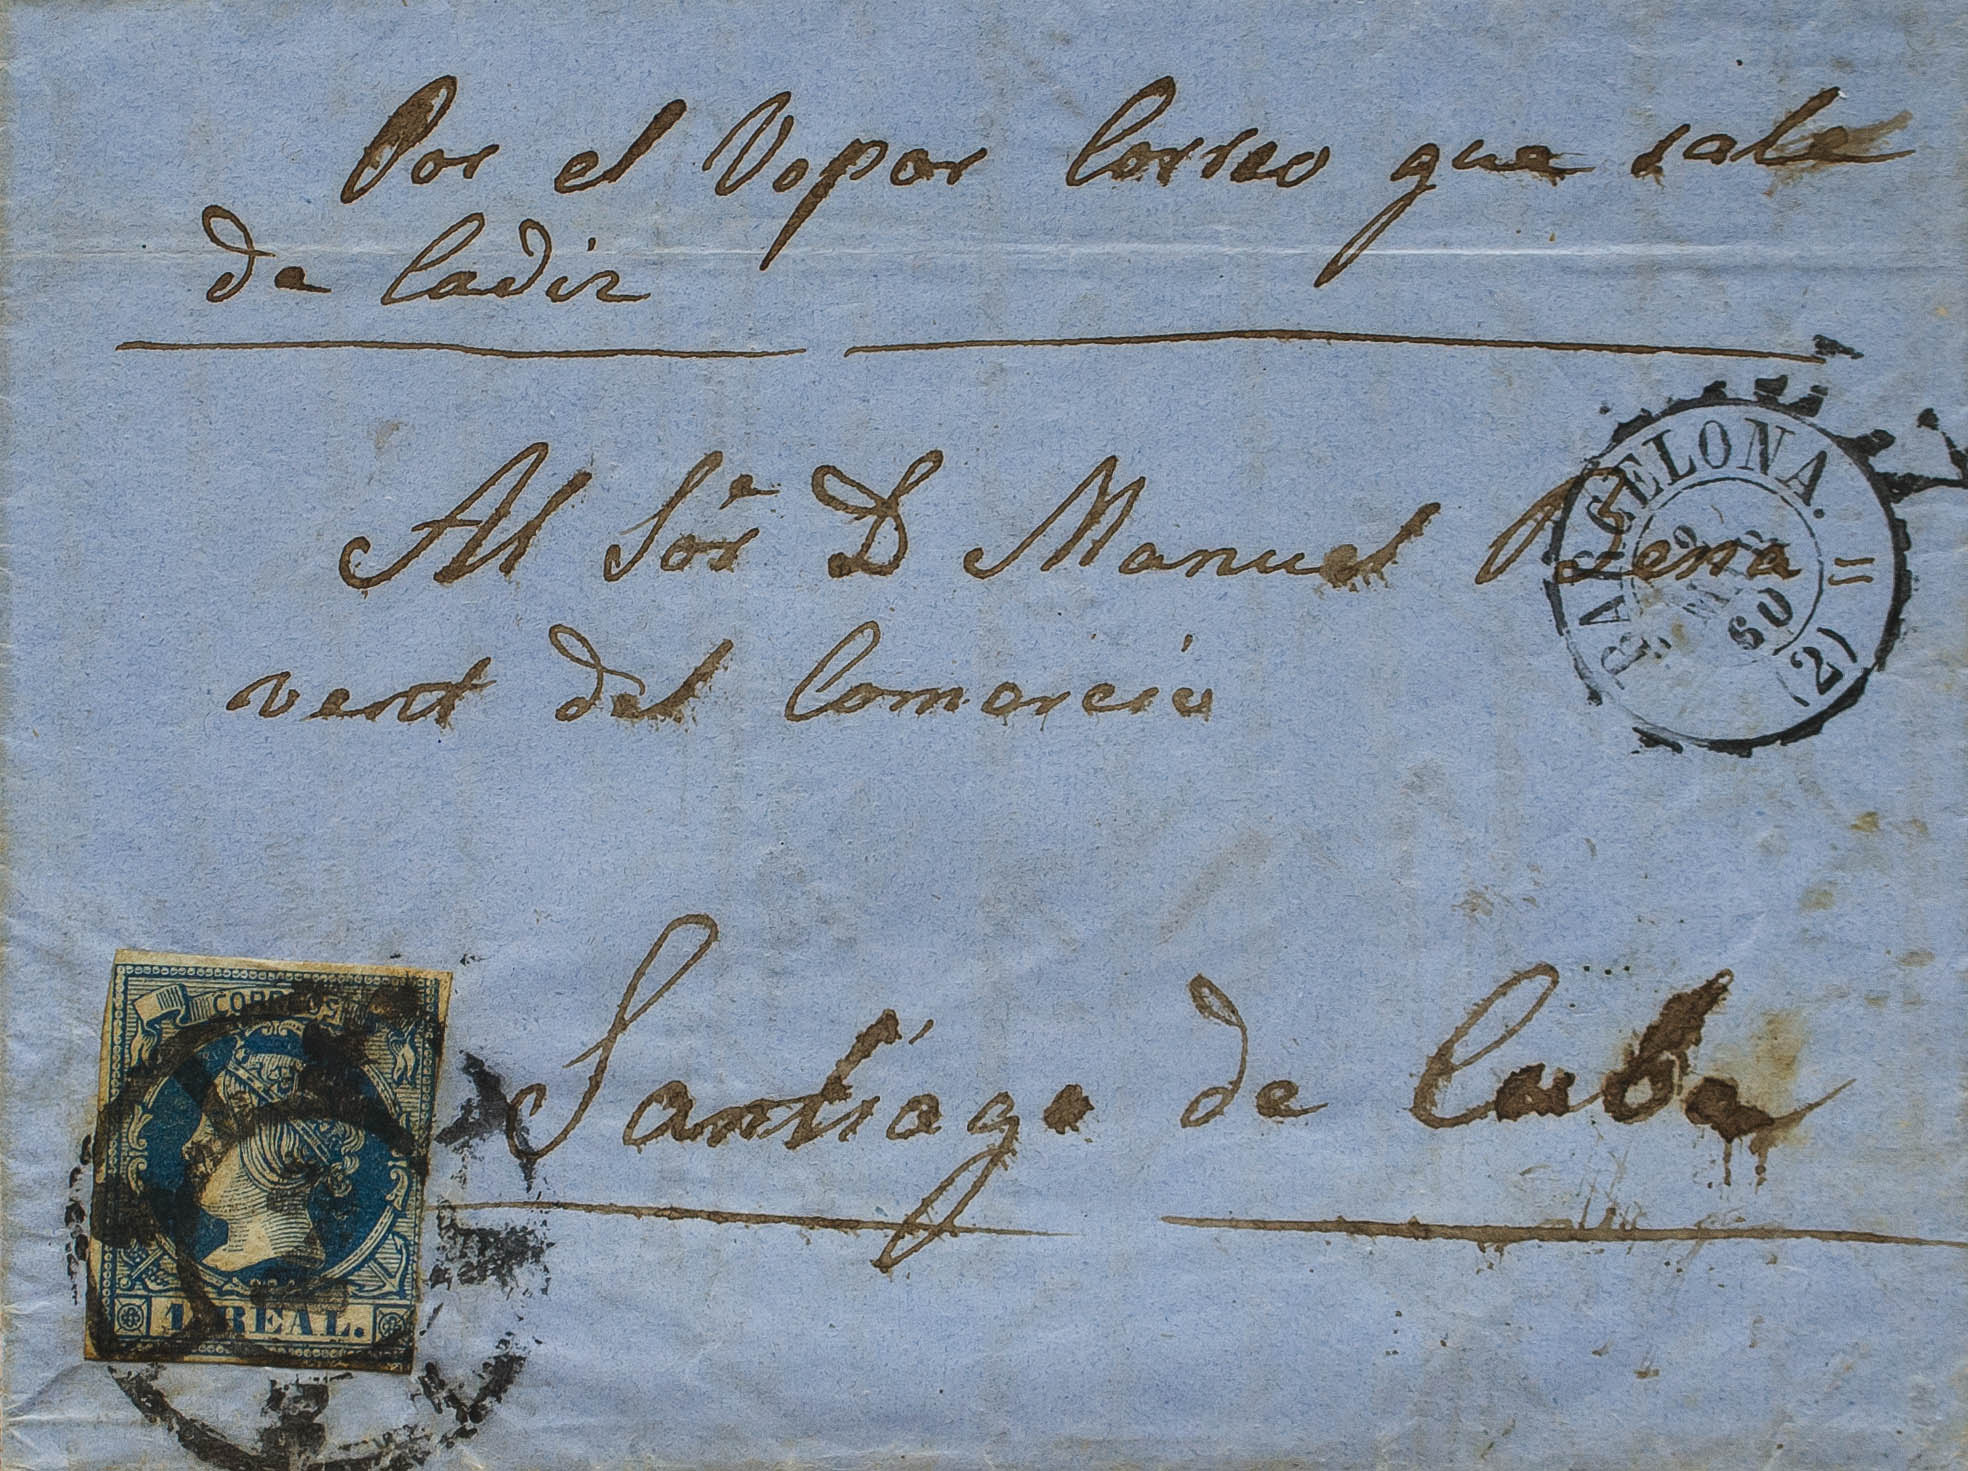 Por el Vapor Correo que sale
de Cadiz
Al Sor. D Manuel Bena=
vent del Comercio
BARCELONA. (2)
9
60
Santiago de Cuba
CORREOS
1 REAL.